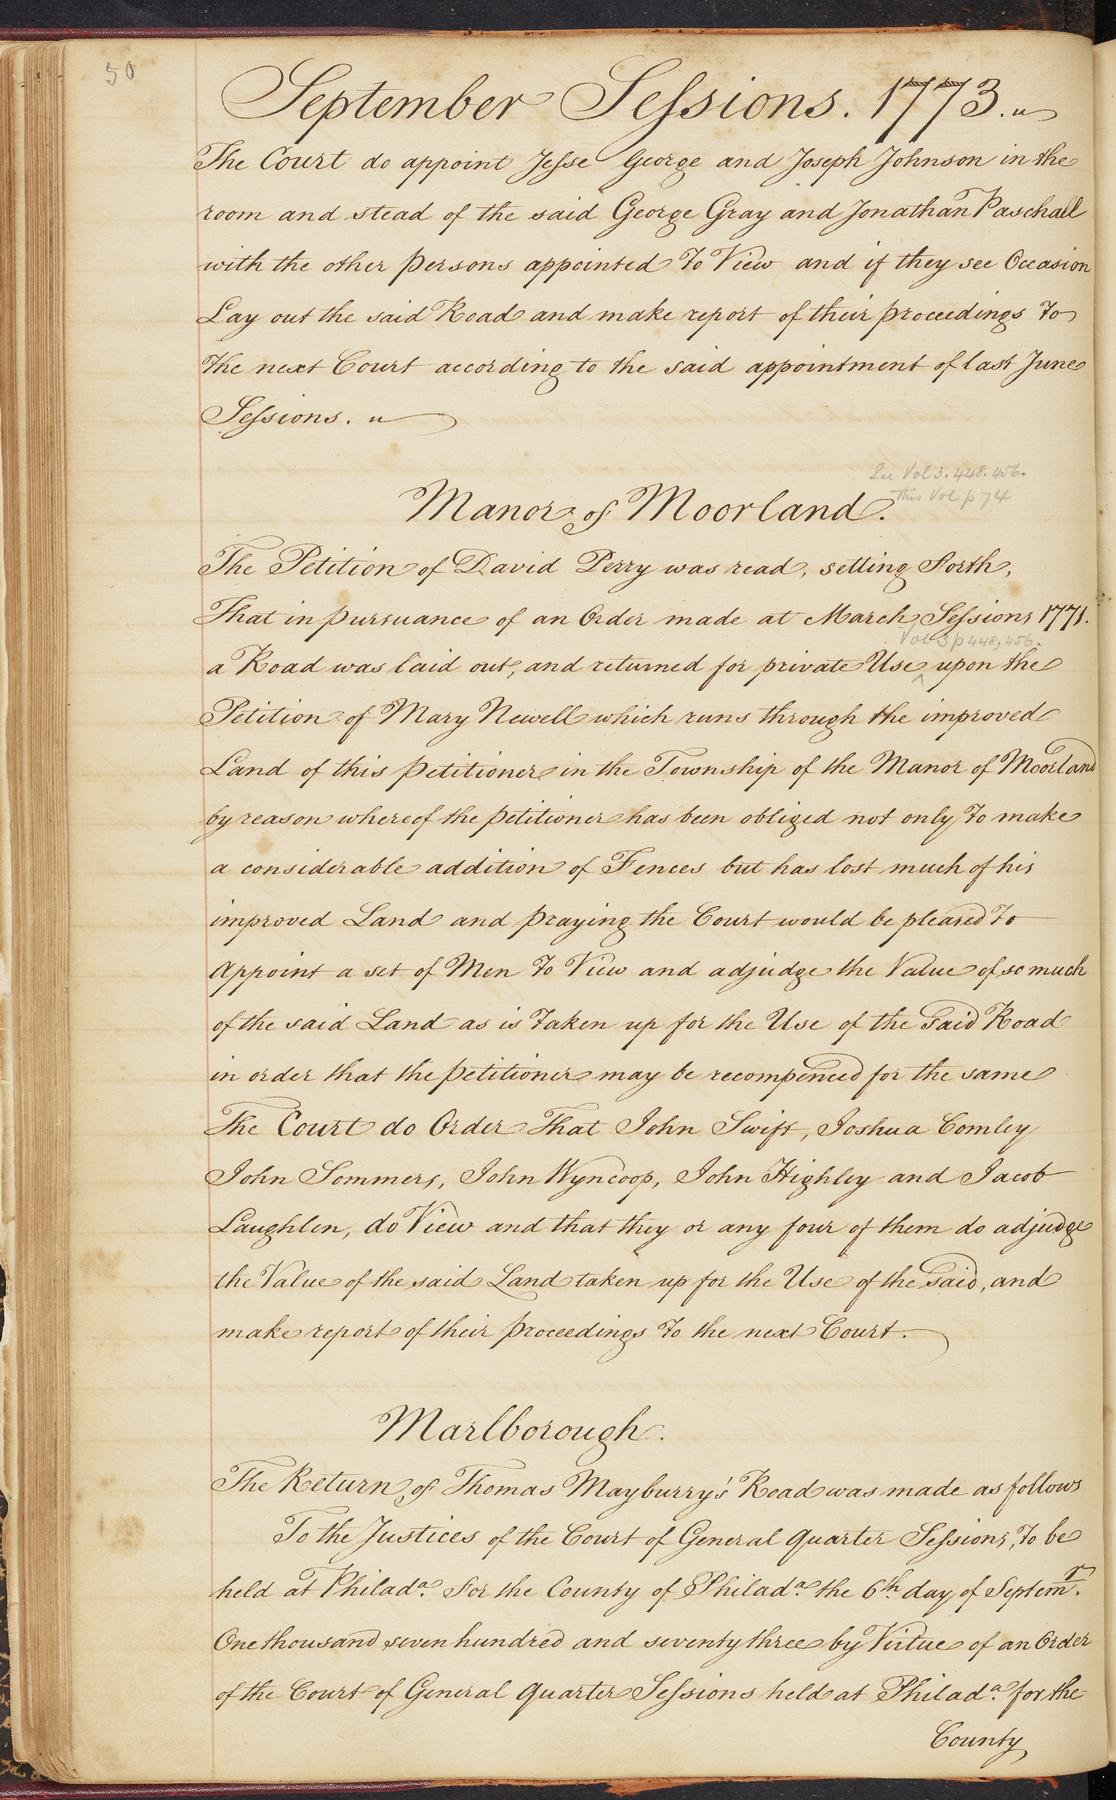 50
September Sessions. 1773.
The Court do appoint Jesse George and Joseph Johnson in the
room and stead of the said George Gray and Jonathan Paschall
with the other persons appointed To View and if they see Occasion
Lay out the said Road and make report of their proceedings To
The next Court according to the said appointment of last June
Sessions.
See Vol 3. 448. 456.
this Vol p 74
Manor of Moorland.
The Petition of David Perry was read, setting Forth,
That in pursuance of an Order made at March Sessions 1771.
Vol 3 p 448, 456.
a Road was laid out, and returned for private Use ^ upon the
Petition of Mary Newell which runs through the improved
Land of this petitioner in the Township of the Manor of Moorland
by reason whereof the petitioner has been obliged not only To make
a considerable addition of Fences but has lost much of his
improved Land and praying the Court would be pleased To
Appoint a set of Men To View and adjudge the Value of so much
of the said Land as is Taken up for the Use of the said Road
in order that the petitioner may be recompenced for the same
The Court do Order That John Swift, Joshua Comley
John Sommers, John Wyncoop, John Highley and Jacob
Laughlen, do View and that they or any four of them do adjudge
the Value of the said Land taken up for the Use of the said, and
make report of their proceedings To the next Court.
Marlborough.
The Return of Thomas Mayburry's Road was made as follows
To the Justices of the Court of General quarter Sessions, To be
held at Philada. For the County of Philada. the 6th. day of Septemr.
One thousand seven hundred and seventy three by Virtue of an Order
of the Court of General quarter Sessions held at Philada. for the
County